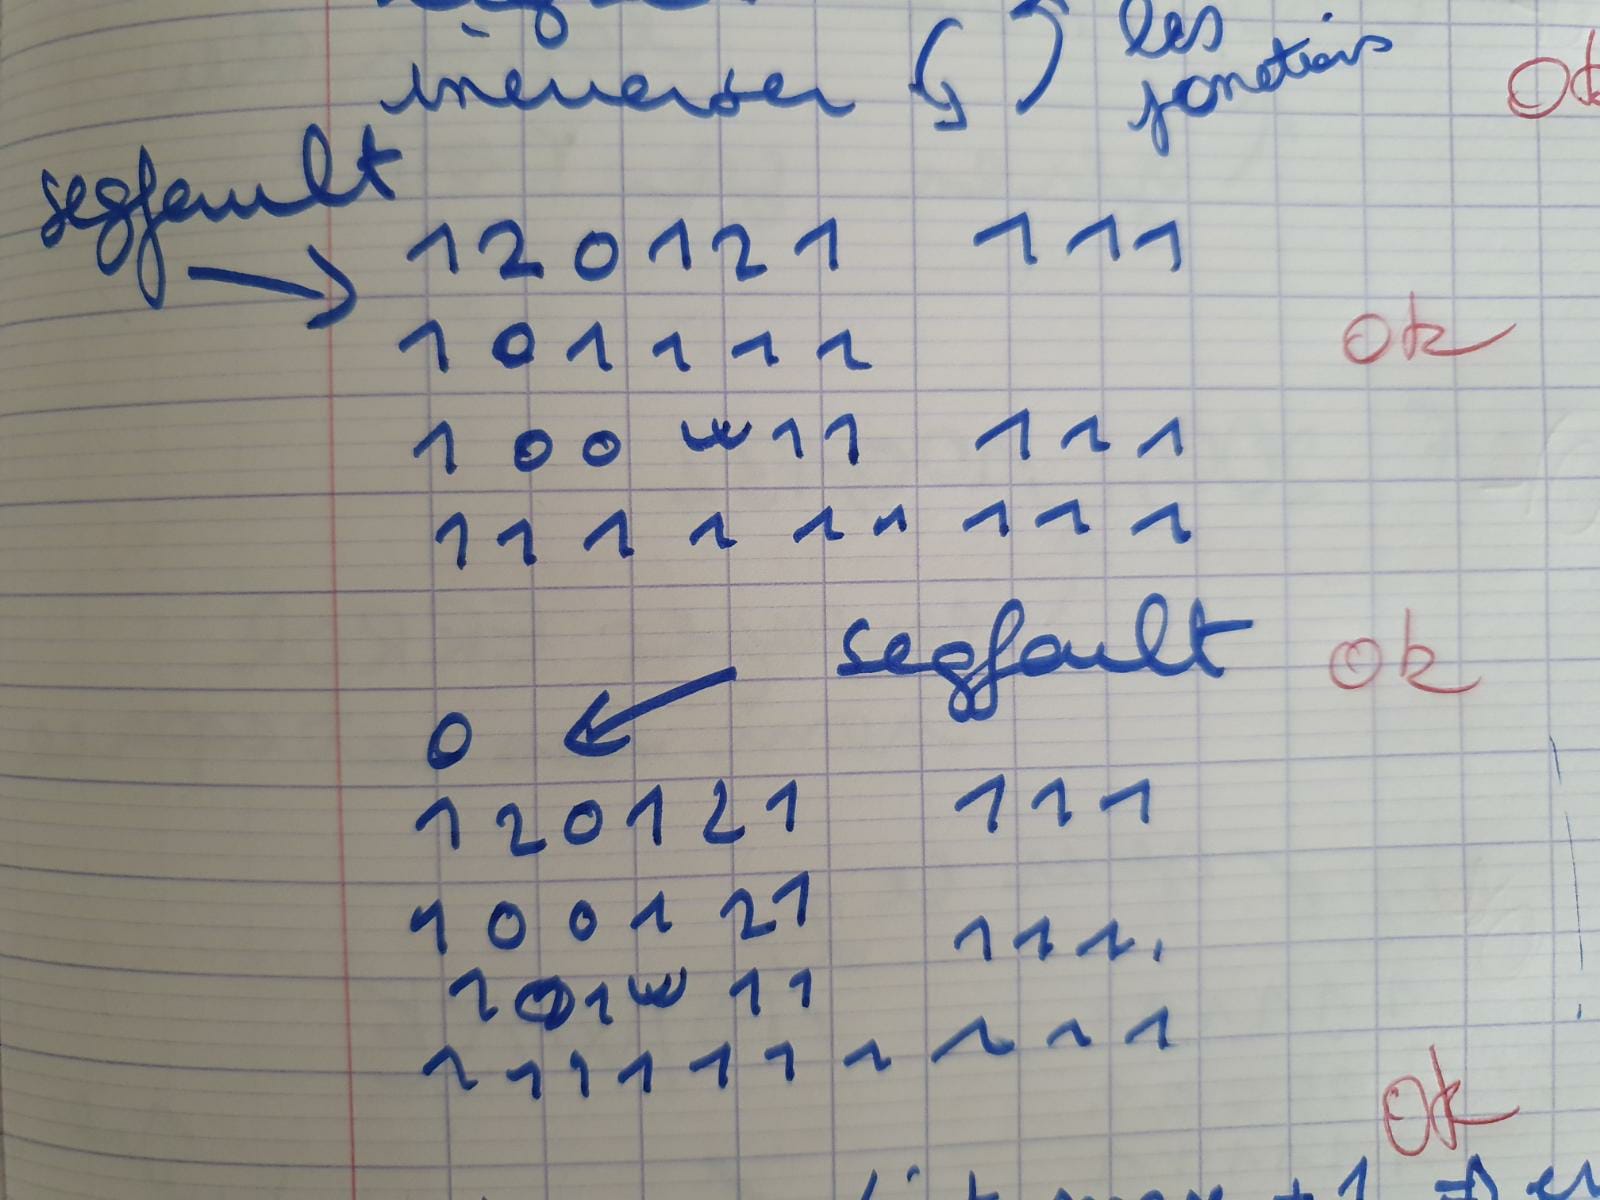 inverser les
fonctions
ok
segfault
120121 111
101111
ok
100 w11 111
111111 111
segfault ok
0
120121 111
100121
111.
1 1w 11
1111111 111
ok
+1 ⇒